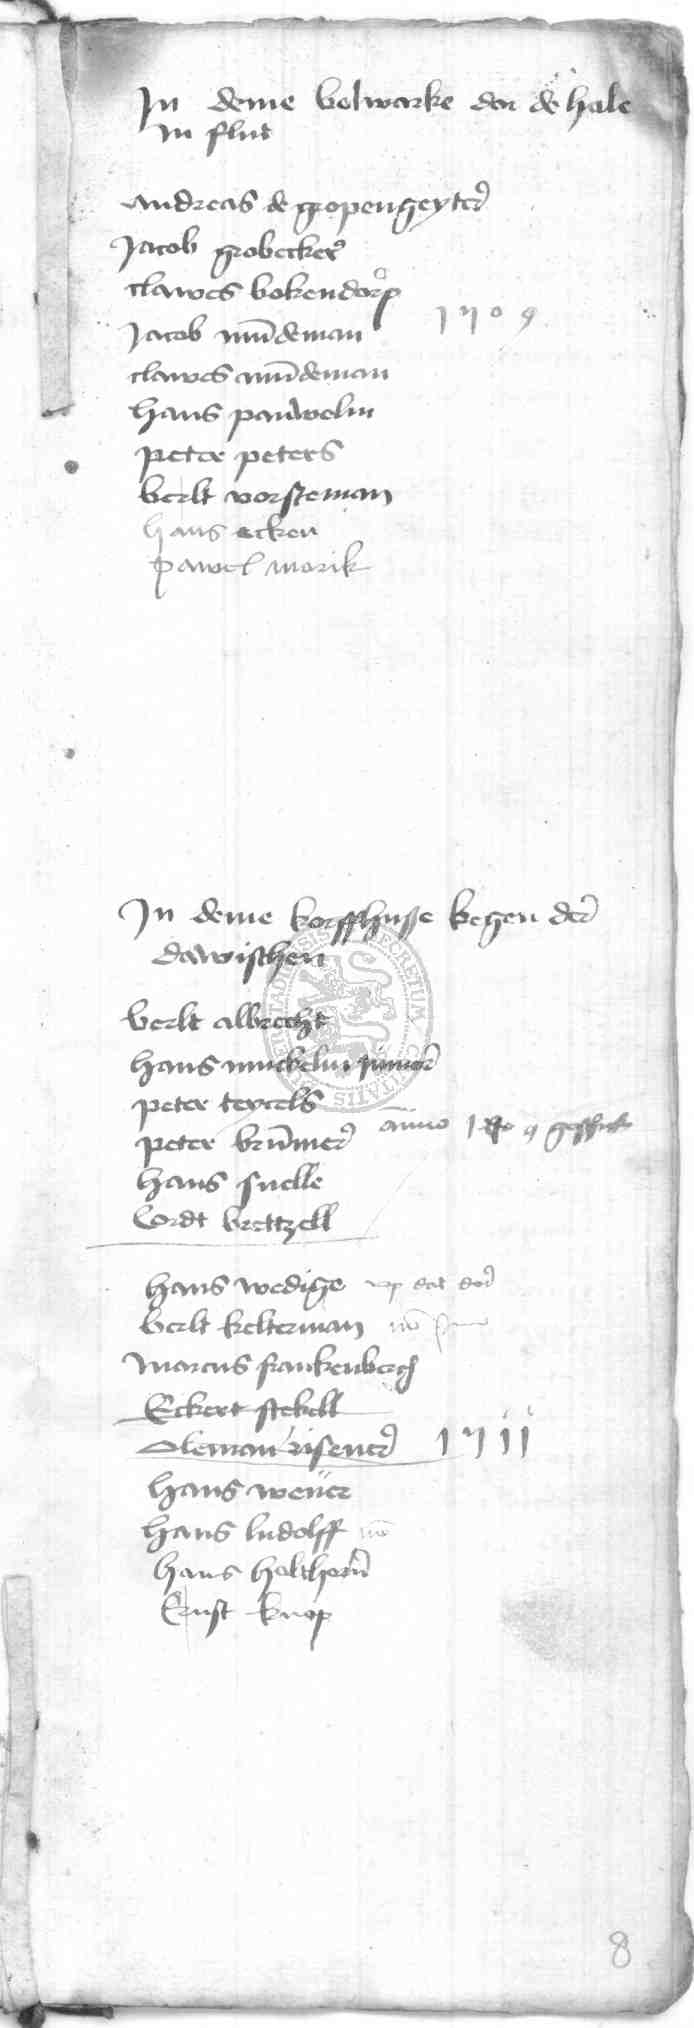 In deme bolwarke dar de hale
in flut
Andreas de gropengeyter
Jacob grobecker
clawes bokendorp
Jacob mundeman 1509
clawes mundeman
hans pauwelm
peter peters
berlt vorsteman
hans ecken
pawel morik
In deme korffhusse kegen der
dawischen
berlt albrecht
hans mickelm junior
peter teytels
peter brunmer anno 1509
hans snelle
Cordt brettzell
hans wedige up dat dor
berlt kelterman
Marcus frankenberch
Eckert stekell
Oleman risener 1511
hans wever
hans ludolff
hans holthorn
Ernst knop
8